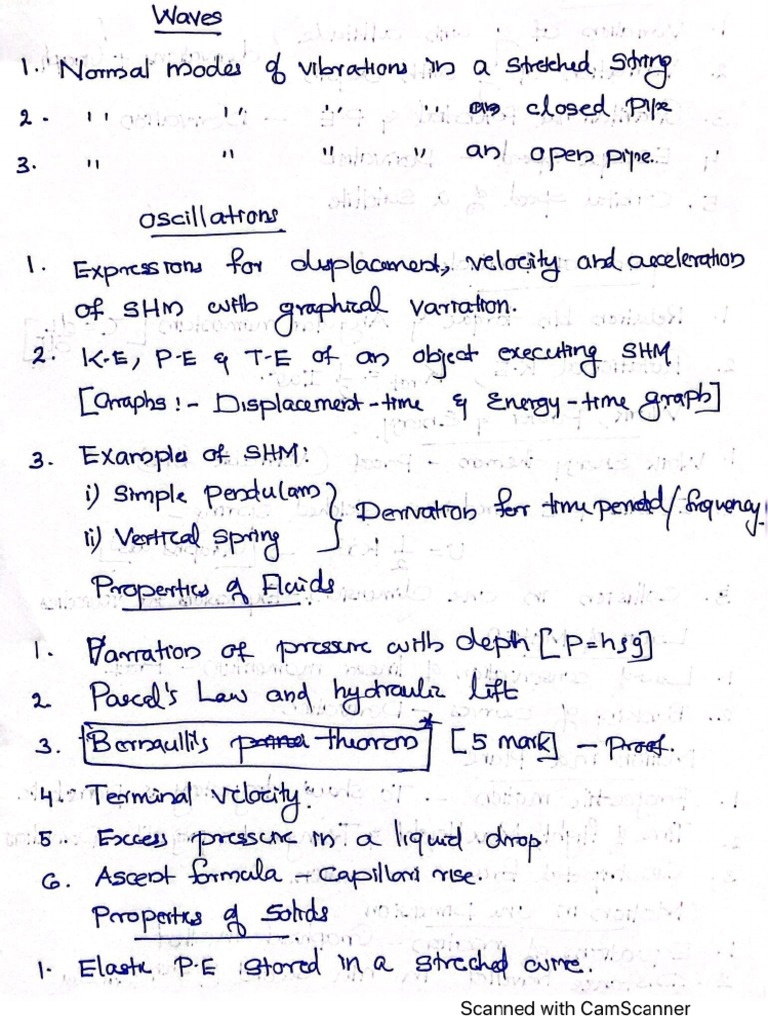 Waves
1. Normal modes of vibrations in a stretched string
2. " " " " an closed pipe
3. " " " " an open pipe.
Oscillations
1. Expressions for displacement, velocity and acceleration
of SHM with graphical variation.
2. K.E, P.E & T.E of an object executing SHM
[Graphs :- Displacement-time & Energy-time graph]
3. Example of SHM:
i) Simple Pendulam } Derivation for time period/frequency.
ii) Vertical Spring
Properties of Fluids
1. Varration of pressure with depth [P=hρg]
2 Pascel's Law and hydraulic lift
3. *Bernaulli's theorem* [5 mark] - Proof.
4. Terminal velocity.
5. Excess pressure in a liquid drop
6. Ascent formula - Capillari rise.
Properties of Solids
1. Elastic P.E stored in a streched wire.
Scanned with CamScanner